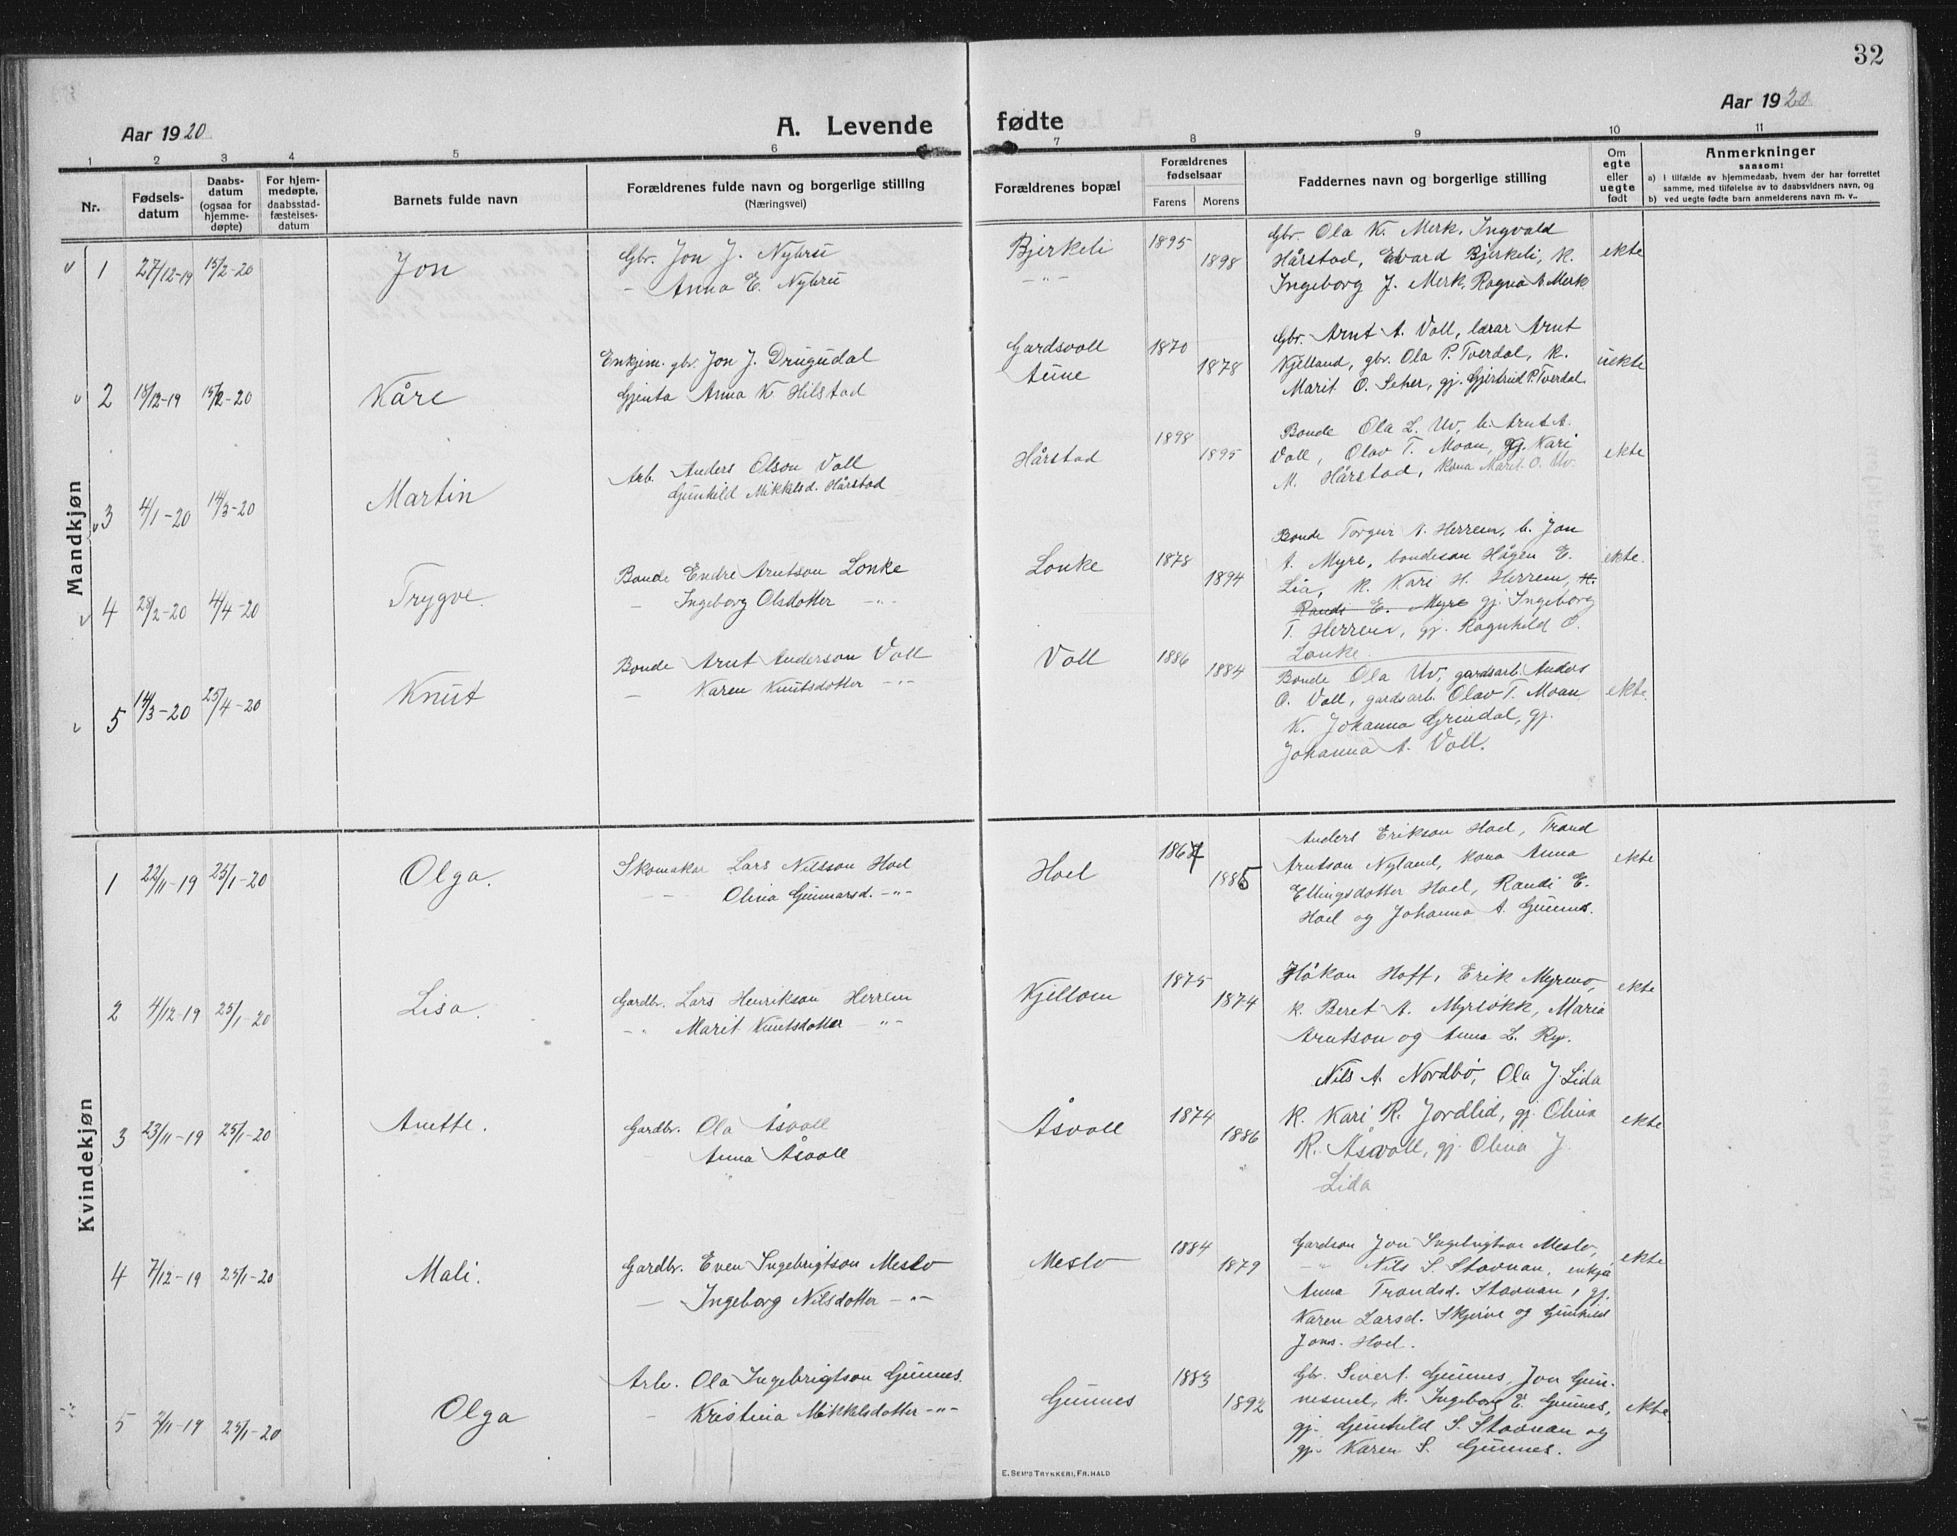 32
Aar 1920
A. Levende fødte
Aar 1920
1 2 3 4 5 6 7 8 9 10 11
Nr.
Fødsels-
datum
Daabs-
datum
(ogsaa for
hjemme-
døpte)
For hjem-
medøpte,
daabsstad-
fæstelses-
datum
Barnets fulde navn
Forældrenes fulde navn og borgerlige stilling
(Næringsvei)
Forældrenes bopæl
Forældrenes
fødselsaar
Farens Morens
Faddernes navn og borgerlige stilling
Om
egte
eller
uegte
født
Anmerkninger
saasom:
a) I tilfælde av hjemmedaab, hvem der har forrettet
samme, med tilføielse av to daabsvidners navn, og
b) ved uegte fødte barn anmelderens navn m. v..
Mandkjøn
1 27/12-19 15/2-20 Jon
Gbr. Jon J. Nybru
- Anna E. Nybru
Bjerkeli
- " -
1895 1898
Gbr. Ola K. Merk, Ingvald
Hårstad, Edvard Bjerkeli, K.
Ingeborg J. Merk, Ragna A Merk
ekte
2 15/12-19 15/2-20 Kåre
Enkjem. gbr. Jon J. Drugudal
Gjenta Anna K. Hilstad
Gardsvoll
Aune
1870 1878
Gbr. Arnt A. Voll, lærar Arnt
Kjelland, gbr. Ola P. Tverdal, K.
Marit O. Seher, gj. Gjertrud P. Tverdal
uekte
3 4/1-20 14/3-20 Martin
Arb. Anders Olson Voll
Gunhild Mikkelsd. Hårstad
Hårstad
1898 1895
Bonde Ola L. Uv, b. Arnt A.
Voll, Olav T. Moan, gj. Kari
M. Hårstad, kona Marit O. Uv.
ekte
4 28/2-20 4/4-20 Trygve.
Bonde Endre Arntson Lonke
- Ingeborg Olsdotter - " -
Lonke
1878 1894
Bonde Torgeir A. Herrem, b. Jon
A. Myre, bondeson Hågen E.
Lia, K. Kari H. Herrem, K.
Randi E. Myre gj. Ingeborg
T. Herrem, gj. Ragnhild O.
Lonke.
ekte.
5 14/3-20 25/4-20 Knut
Bonde Arnt Anderson Voll
- Karen Knutsdotter - " -
Voll
1886 1884
Bonde Ola Uv, gardsarb. Anders
O. Voll, gardsarb. Olav T. Moan
K. Johanna Grindal, gj.
Johanna A. Voll.
ekte.
Kvindekjøn
1 22/11-19 25/1-20 Olga.
Skomakar Lars Nilsson Hoel
- - Olina Gunnarsd. - " -
Hoel
1867 1885
Anders Erikson Hoel, Trond
Arntson Nyland, kona Anna
Ellingsdotter Hoel, Randi E.
Hoel og Johanna A. Gunnes.
ekte
2 4/12-19 25/1-20 Lisa.
Gardbr. Lars Henrikson Herrem
- " Marit Knutsdotter - " -
Kjelloen
1875 1874
Håkon Hoff, Erik Myrmo,
K. Beret A. Myrsøkk, Maria
Arntson og Anna L. Ry.
ekte
3 23/11-19 25/1-20 Anette.
Gardbr. Ola Åsvoll
Anna Åsvoll
Åsvoll
1874 1886
Nils A. Nordbø, Ola J. Lida
K. Kari R. Jordlid, gj. Olina
R. Åsvoll, gj. Olina J.
Lida
ekte
4 7/12-19 25/1-20 Mali.
Gardbr. Even Ingebrigtson Meslo
- Ingeborg Nilsdotter - " -
Meslo
1884 1879
Gardson Jon Ingebrigtson Meslo,
- " Nils S. Stavnan, enkja
Anna Trondsd. Stavnan, gj.
Karen Larsd. Skjerve og Gunhild
Jons. Hoel.
ekte
5 2/11-19 25/1-20 Olga
Arb. Ola Ingebrigtson Gunnes.
- Kristina Mikkelsdotter - " -
Gunnes
1883 1892
Gbr. Sivert Gunnes, Jon Gun-
nesmel, K. Ingeborg E. Gunnes,
gj. Gunhild S. Stavnan og
gj. Karen S. Gunnes.
ekte
E. SEM'S TRYKKERI, FR.HALD